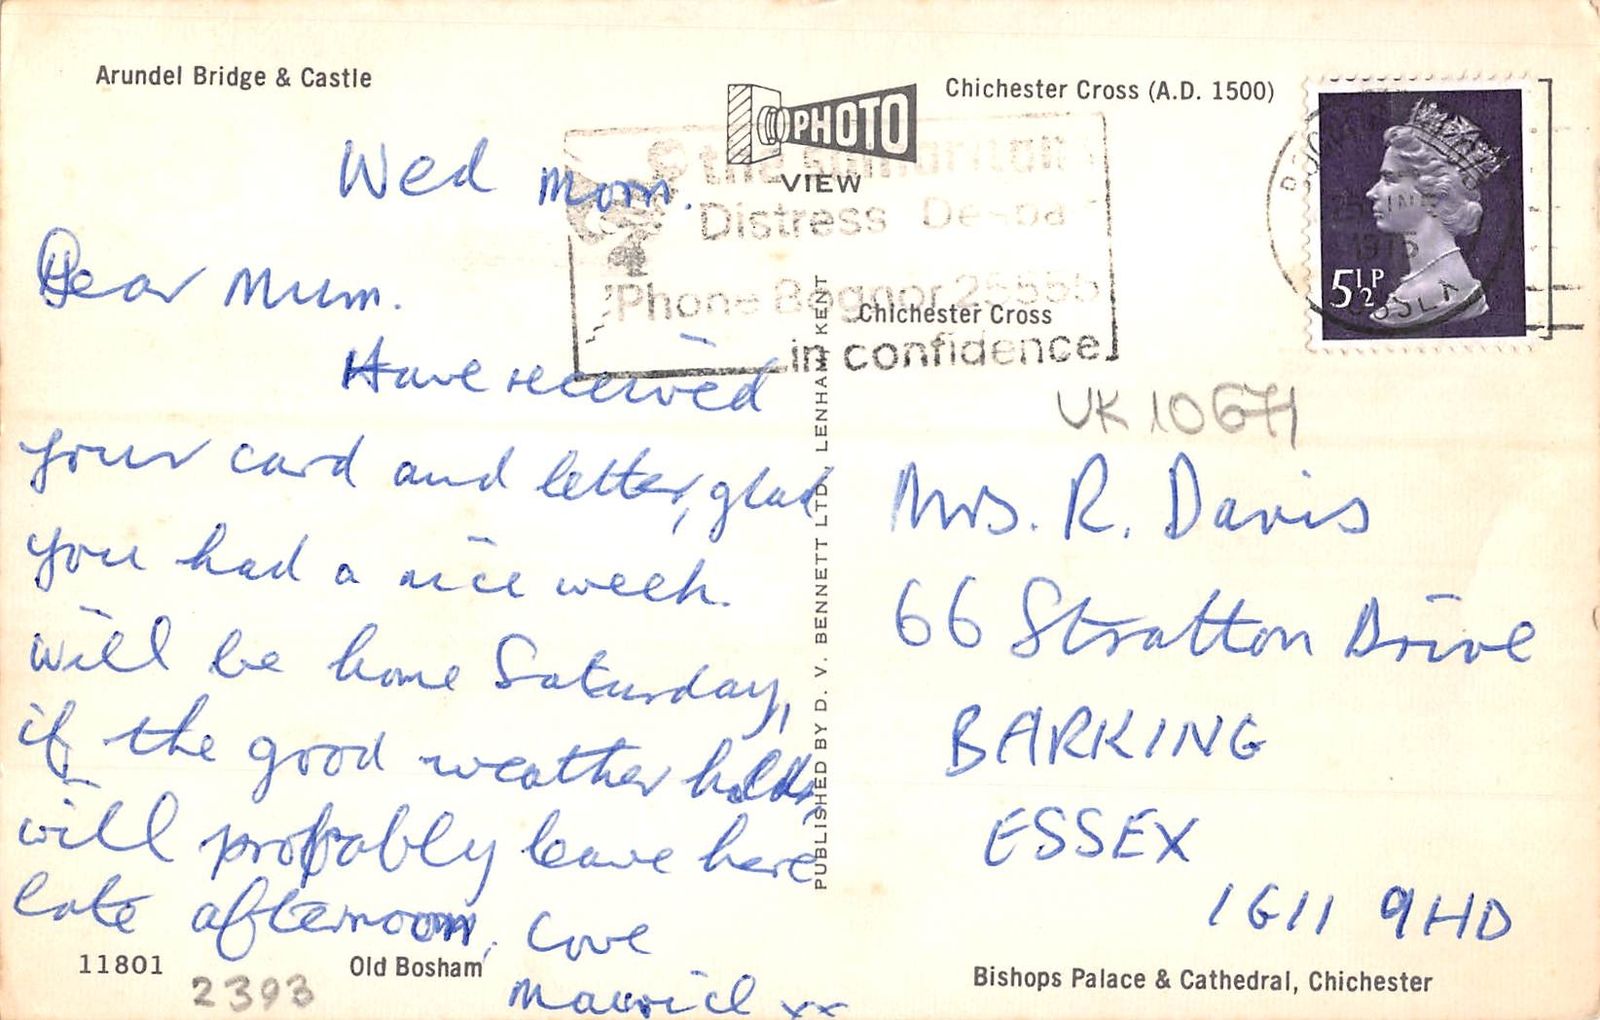 Arundel Bridge & Castle
PHOTO
VIEW
Chichester Cross (A.D. 1500)
Distress
Phone Bognor
in confidence
1975
5½P
Chichester Cross
UK 10671
Wed Morn.
Dear Mum.
Have received
your card and letter, glad
you had a nice week.
Will be home Saturday,
if the good weather holds,
will probably leave here
late afternoon, Love
Maurice xx
PUBLISHED BY D. V. BENNETT LTD. LENHAM KENT
Mrs. R. Davis
66 Stratton Drive
BARKING
ESSEX
IG11 9HD
11801
2393
Old Bosham
Bishops Palace & Cathedral, Chichester